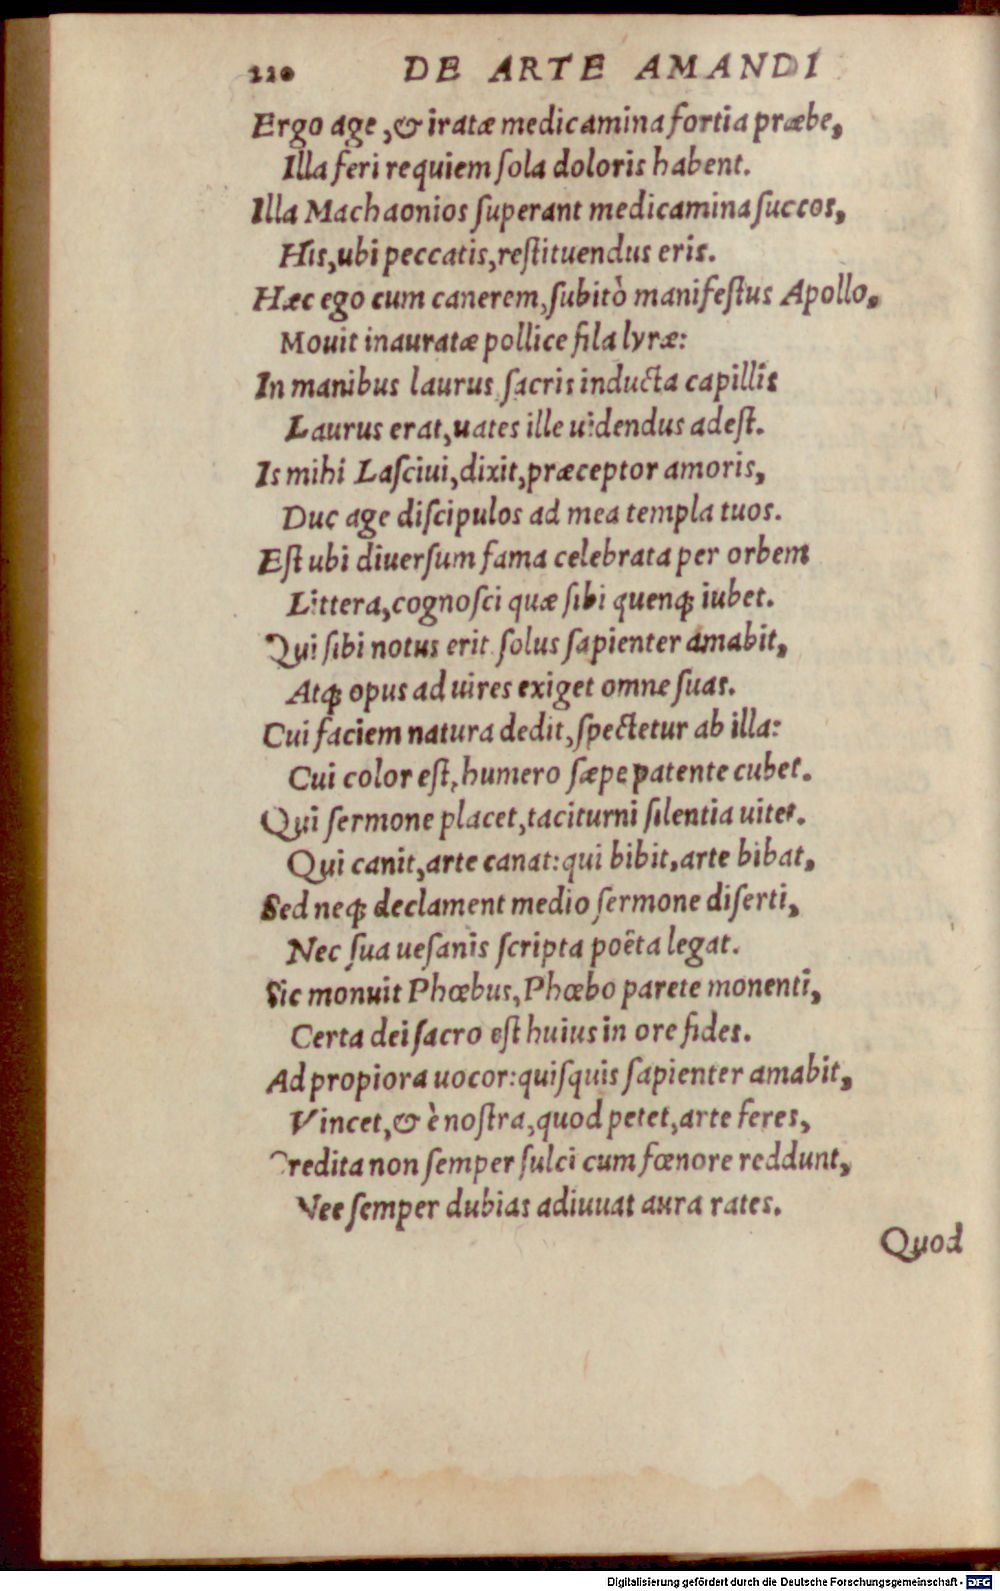 220 DE ARTE AMANDI
Ergo age, & iratæ medicamina fortia præbe,
Illa feri requiem ſola doloris habent.
Illa Machaonios ſuperant medicamina ſuccos,
His, ubi peccatis, reſtituendus eris.
Hæc ego cum canerem, ſubitò manifeſtus Apollo,
Mouit inauratæ pollice fila lyræ:
In manibus laurus ſacris inducta capillis
Laurus erat, uates ille uidendus adeſt.
Is mihi Laſciui, dixit, præceptor amoris,
Duc age diſcipulos ad mea templa tuos.
Eſt ubi diuerſum fama celebrata per orbem
Littera, cognoſci quæ ſibi quenq; iubet.
Qui ſibi notus erit ſolus ſapienter amabit,
Atq; opus ad uires exiget omne ſuas.
Cui faciem natura dedit, ſpectetur ab illa:
Cui color eſt, humero ſæpe patente cubet.
Qui ſermone placet, taciturni ſilentia uitet.
Qui canit, arte canat: qui bibit, arte bibat,
Sed neq; declament medio ſermone diſerti,
Nec ſua ueſanis ſcripta poëta legat.
Sic monuit Phœbus, Phœbo parete monenti,
Certa dei ſacro eſt huius in ore fides.
Ad propiora uocor: quiſquis ſapienter amabit,
Vincet, & è noſtra, quod petet, arte feres,
Credita non ſemper ſulci cum fœnore reddunt,
Nec ſemper dubias adiuuat aura rates.
Quod
Digitalisierung gefördert durch die Deutsche Forschungsgemeinschaft - DFG